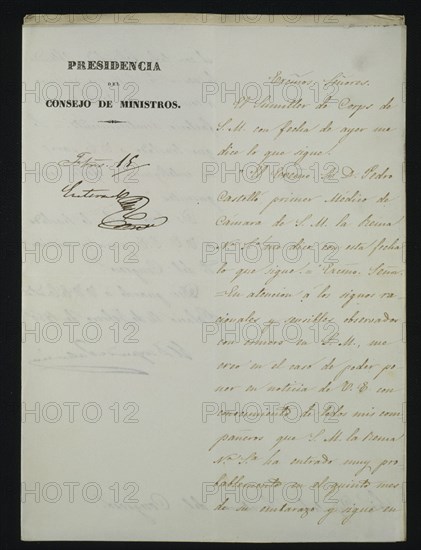 PRESIDENCIA
DEL
CONSEJO DE MINISTROS.
Febro. 15/
Enterado
Excmos. Señores.
El Sumiller de Corps de
S. M. con fecha de ayer me
dice lo que sigue.
El Excmo. Sr. D. Pedro
Castelló primer Médico de
Cámara de S. M. la Reina
Na. Sa. me dice con esta fecha
lo que sigue. = Excmo. Señor.
En atencion á los signos ra-
cionales y sensibles observados
con esmero en S. M., me
creo en el caso de poder po-
ner en noticia de V. E. con
conocimiento de todos mis com-
pañeros que S. M. la Reina
Na. Sa. ha entrado muy pro-
bablemente en el quinto mes
de su embarazo y sigue en
PHOTO 12